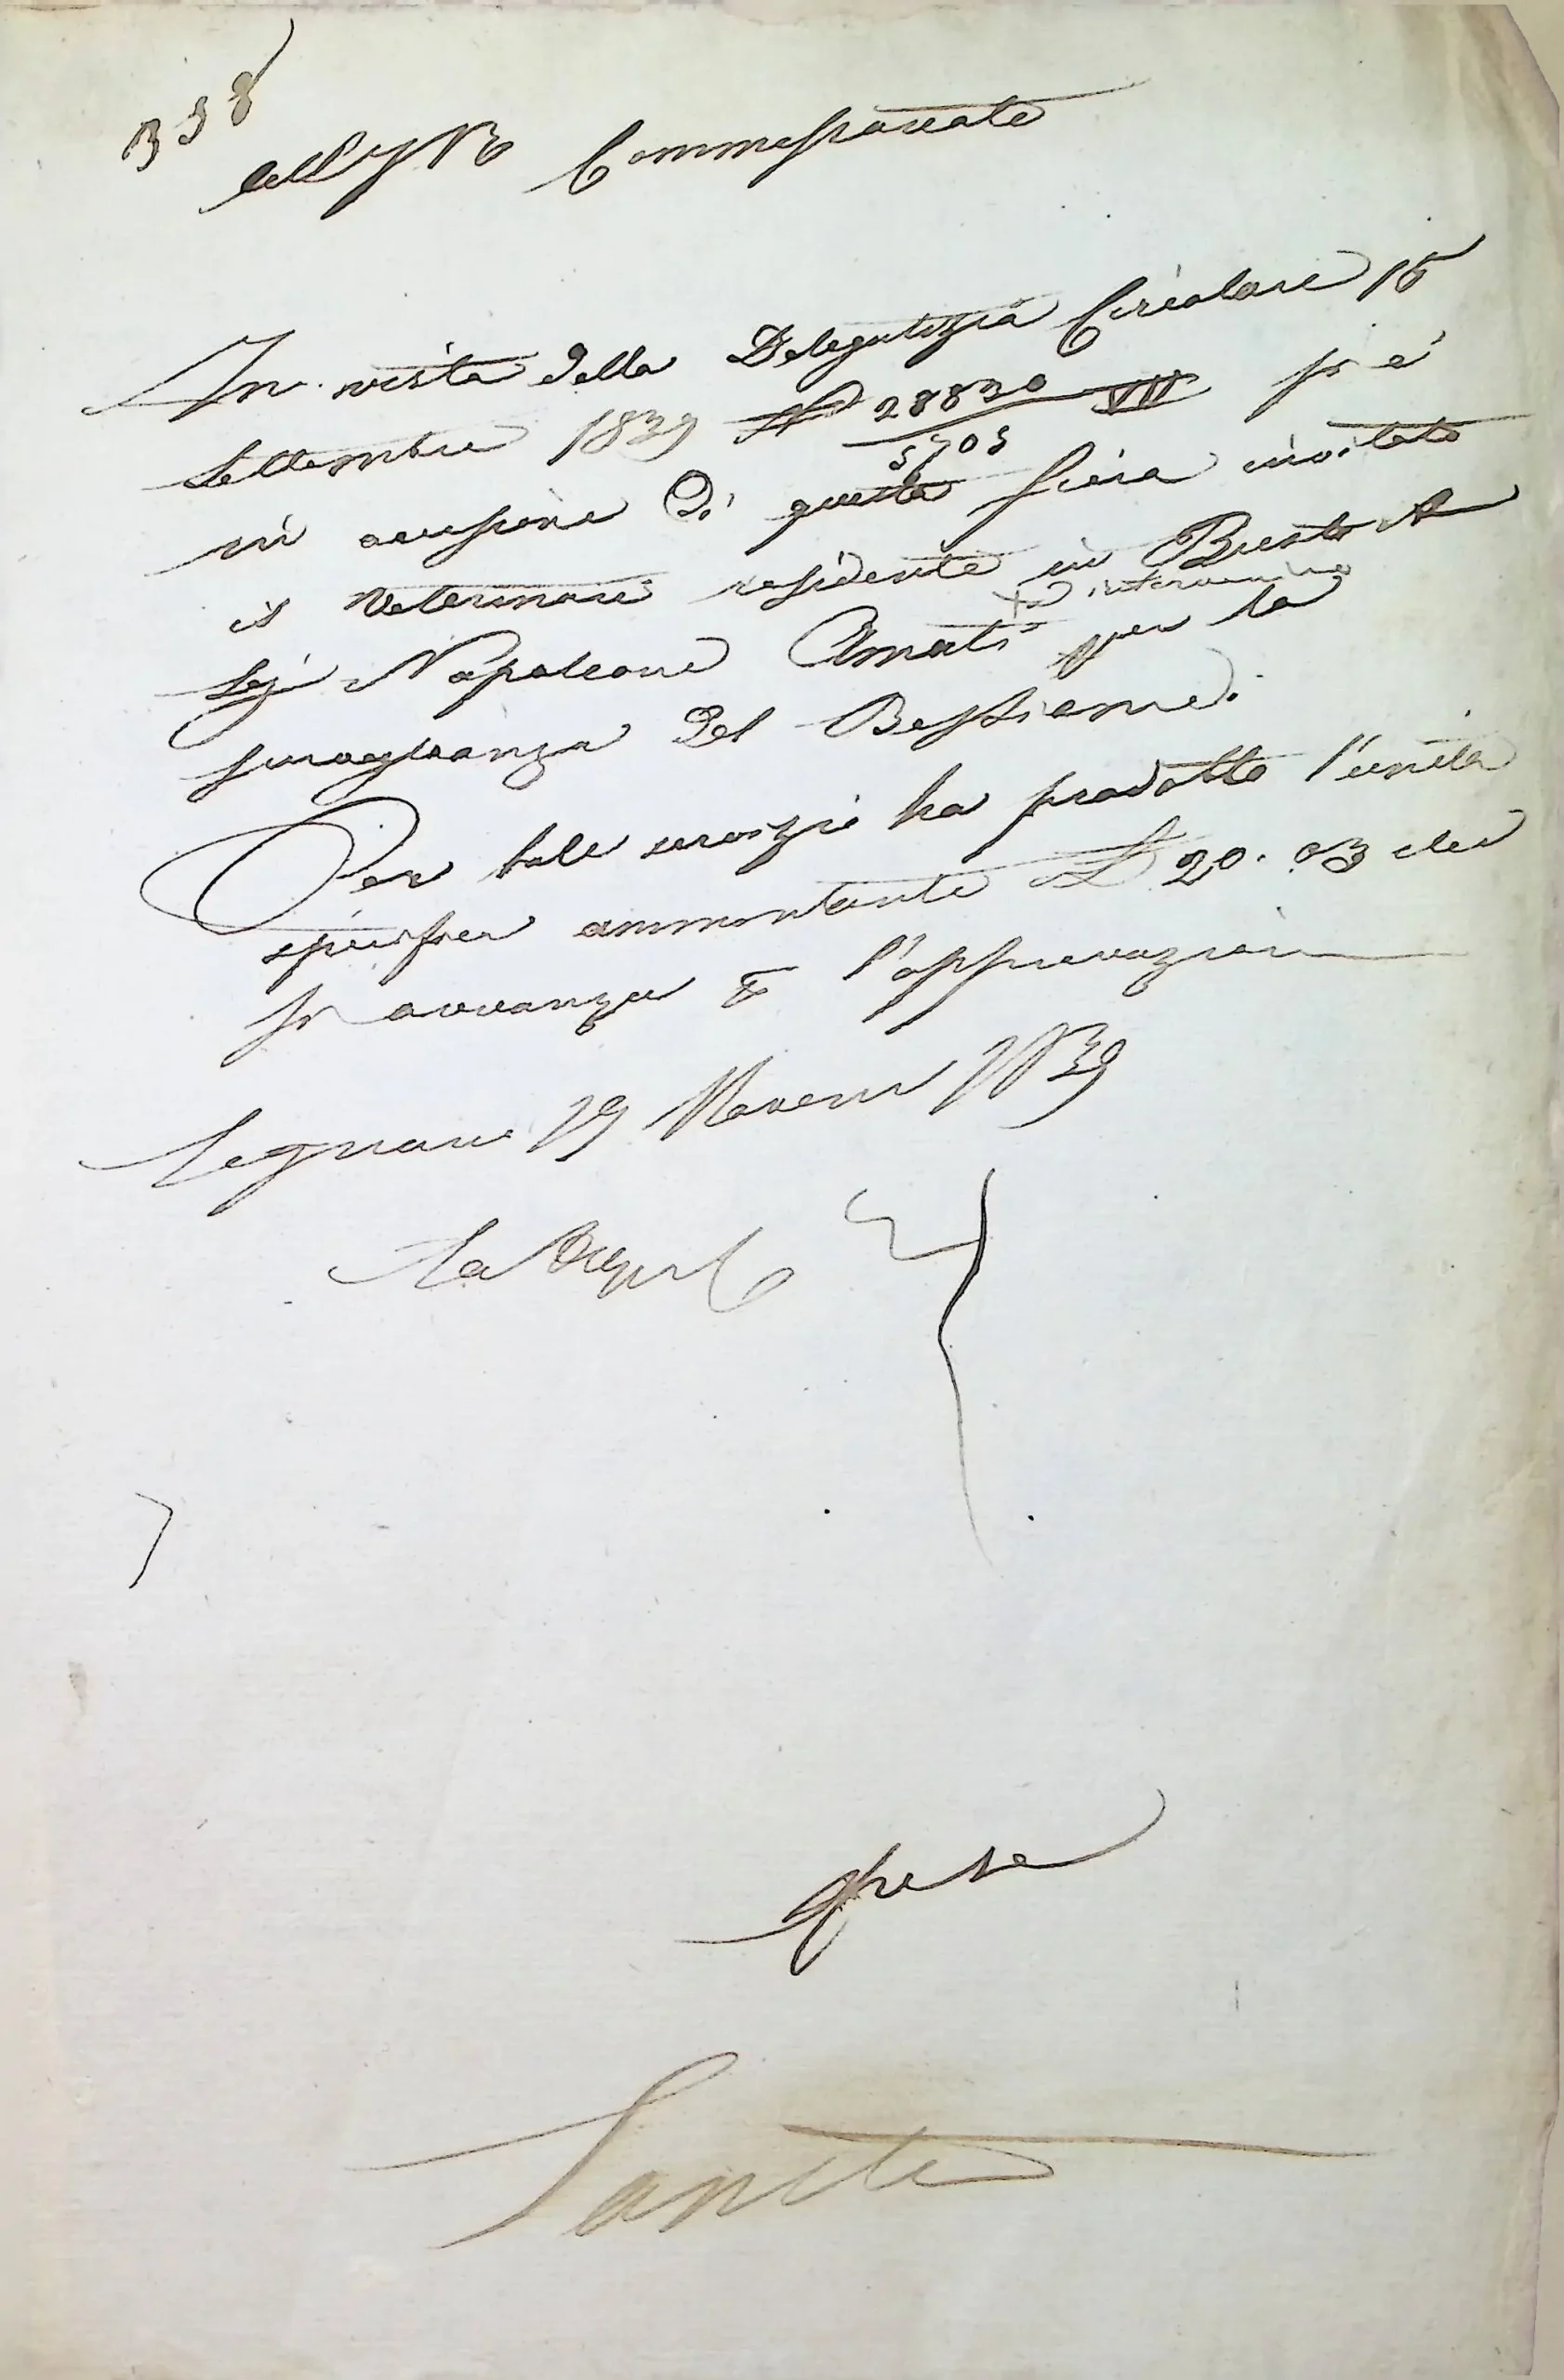 338
All'I R Commissariato
In vista della Delegatizia Circolare 16
Settembre 1839 N 28830/5703 VII si è
in occasione di questa fiera invitato
il Veterinario residente in Busto A
ad intervenire
Sig Napoleone Amati per la
sorveglianza del Bestiame.
Per tale servizio ha prodotto l'unita
specifica ammontante L 20. 03 che
si avvanza per l'approvazione
Legnano 19 Novem 1839
La Deput
Spese
Sanità